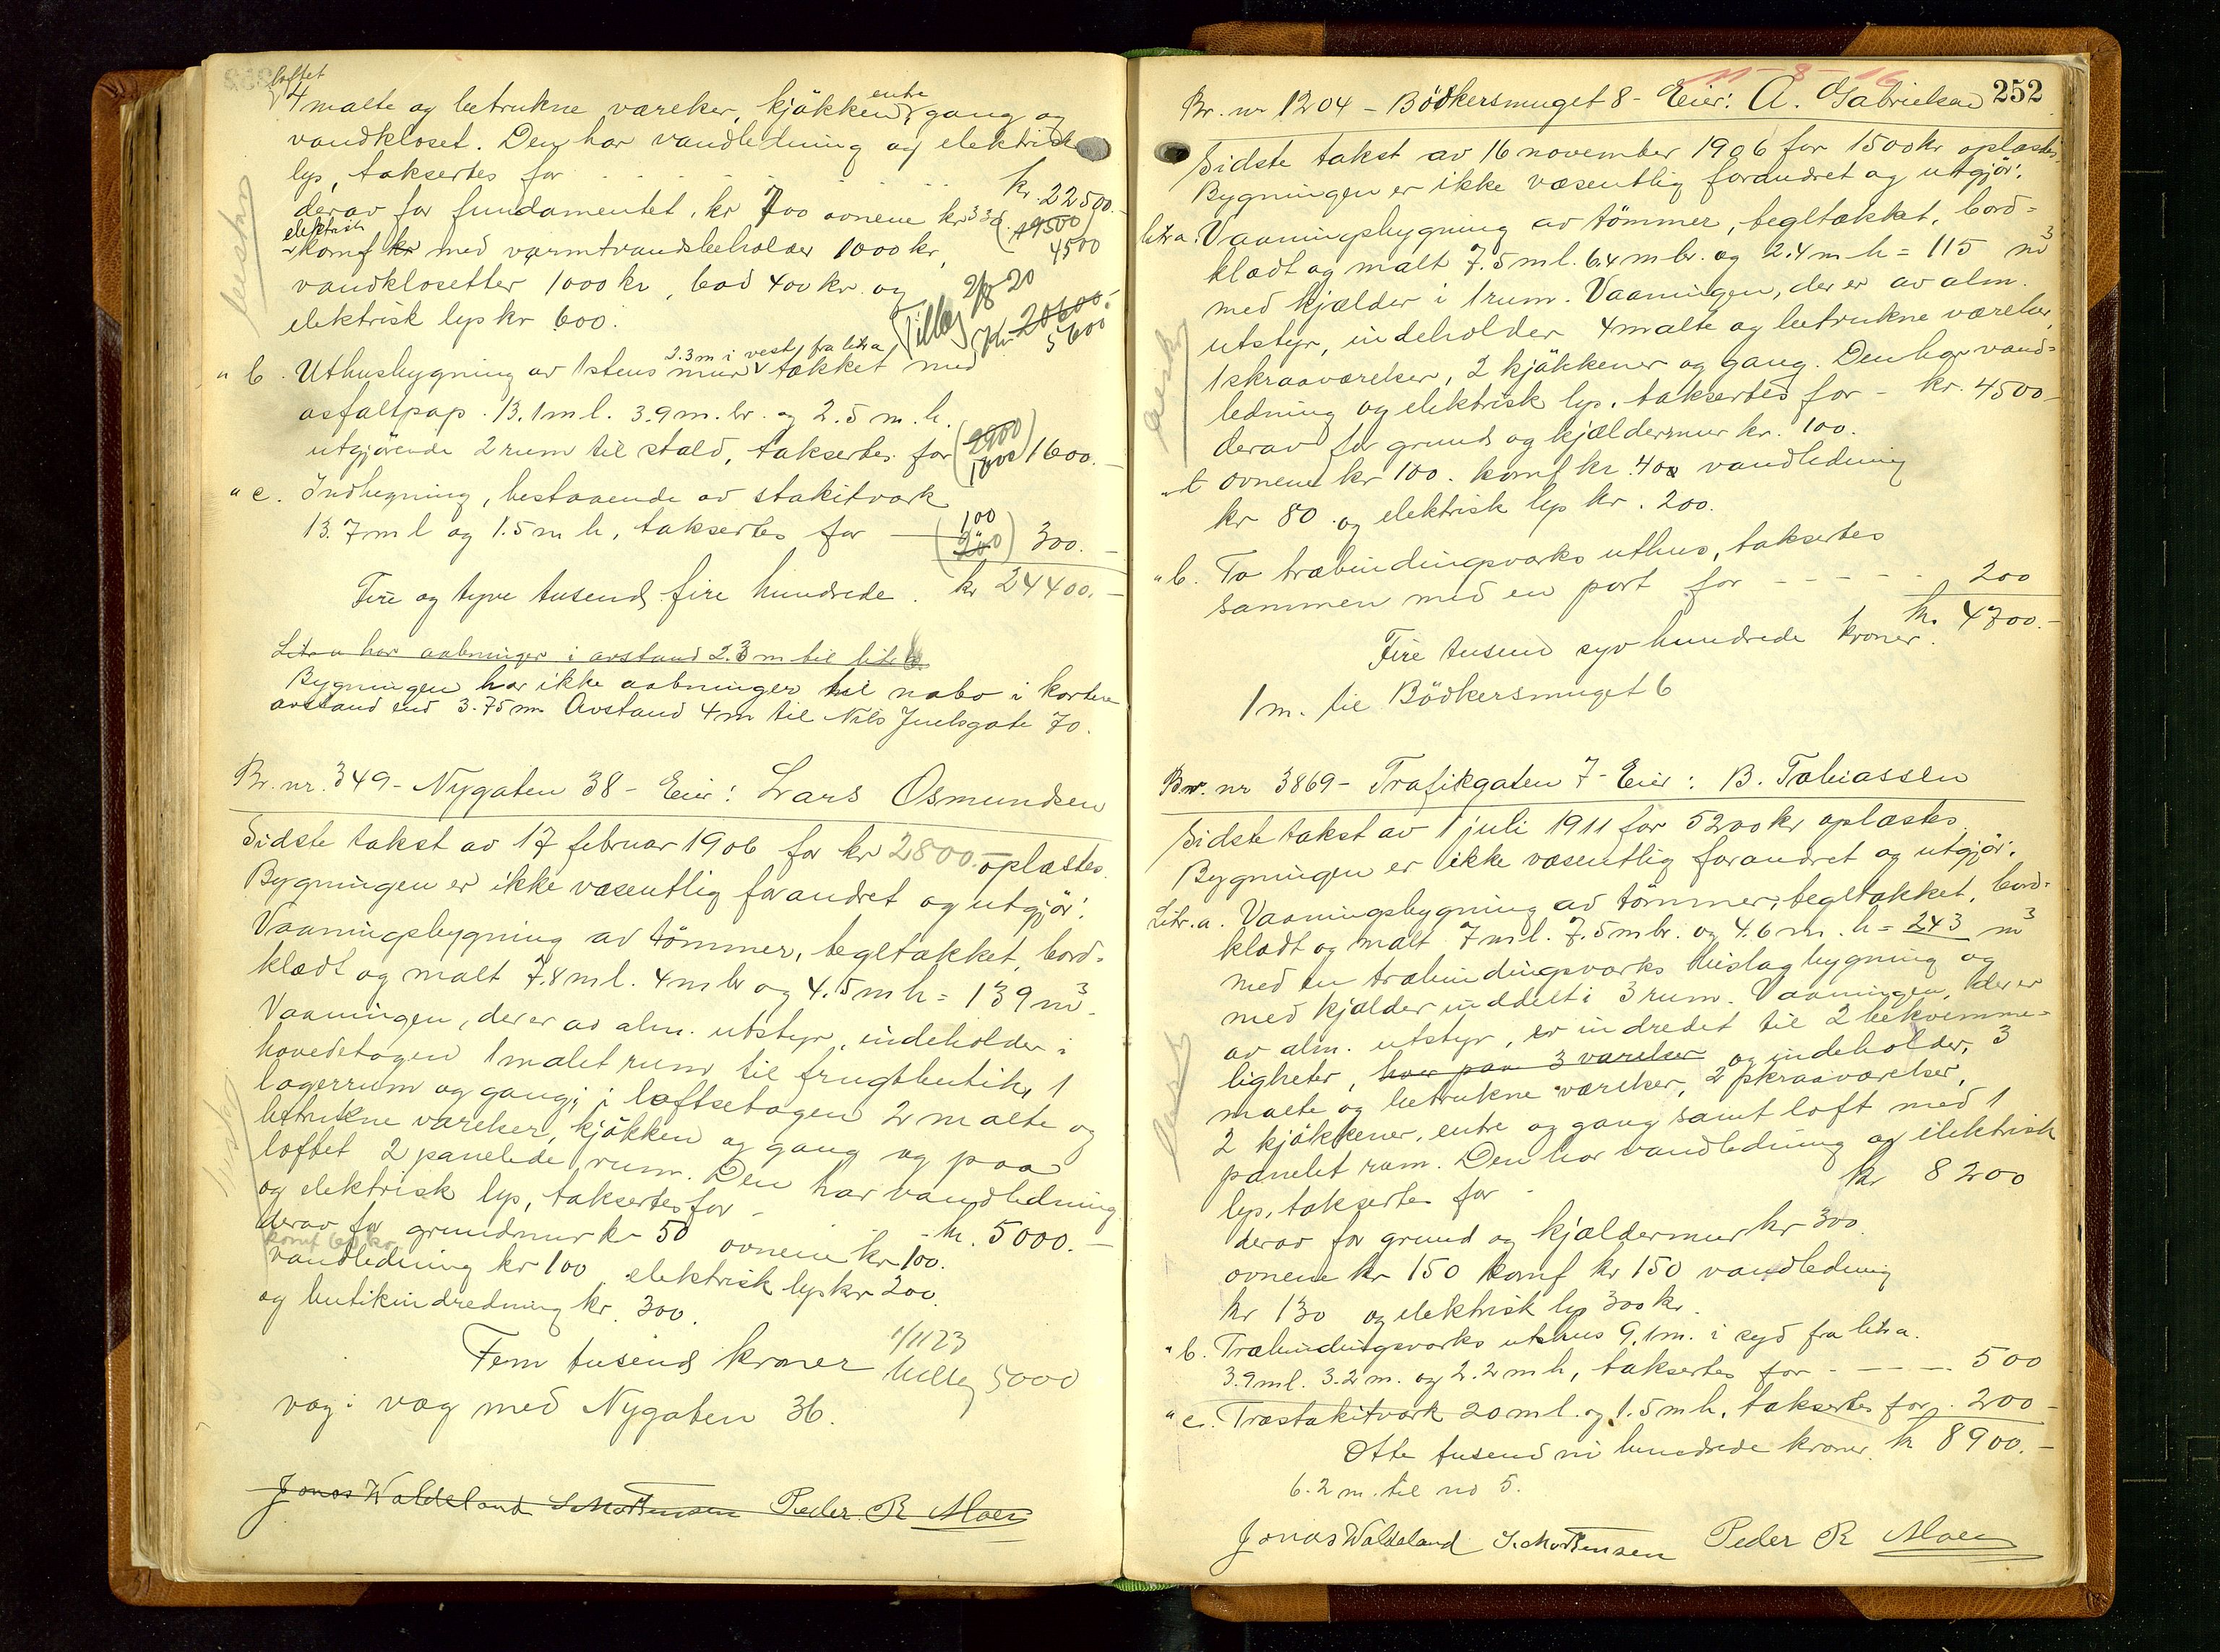 loftet
4 malte og betrukne værelser, kjøkken, entre gang og
vandkloset. Den har vandledning og elektrisk
lys, taksertes for . . . . . . kr. 22500.-
derav for fundamentet, kr 700 ovnene kr 330. (19500
elektrisk
komf kr med varmtvandsbeholder 1000 kr, 4500
vandklosetter 1000 kr, bad 400 kr og
elektrisk lys kr 600. Tillæg 2/8-20 Kr. 20600.-
5600
2.3 m i vest fra litra
" b. Uthusbygning av 1stens mur tækket med
asfaltpap. 13.1 m l. 3.9 m. br. og 2.5 m. h.
utgjørende 2 rum til stald, taksertes for (2900 1800) 1600.-
" c. Indhegning, bestaaende av stakitværk
13.7 m l og 1.5 m h, taksertes for - (100 200) 300.-
Fire og tyve tusend fire hundrede. kr 24400.-
Litr a har aabninger i avstand 2.3 m til litr b.
Bygningen har ikke aabninger til nabo i kortere
avstand end 3.75 m. Avstand 4 m til Nils Juelsgate 70.
Br. nr. 349 - Nygaten 38 - Eier: Lars Osmundsen
Sidste takst av 17 februar 1906 for kr 2800.- oplæstes.
Bygningen er ikke væsentlig forandret og utgjør:
Vaaningsbygning av tømmer, tegltækket, bord-
klædt og malt 7.8 m l. 4 m br og 4.5 m h = 139 m³.
Vaaningen, der er av alm. utstyr, indeholder i
hovedetagen 1 malet rum til frugtbutik, 1
lagerrum og gang; i loftsetagen 2 malte og
betrukne værelser, kjøkken og gang og paa
loftet 2 panelede rum. Den har vandledning
og elektrisk lys, taksertes for - . . - kr. 5000.-
derav for grundmur kr 50 ovnene kr 100.
komf 60 kr
vandledning kr 100, elektrisk lys kr 200
og butikindredning kr. 300.
Fem tusend kroner 1/11 23
tillæg 5000
væg i væg med Nygaten 36.
Jonas Waldeland S. Mortensen Peder R Moen
11-8-16
252
Br. nr 1204 - Bødkersmuget 8 - Eier: A. Gabrielsen
Sidste takst av 16 november 1906 for 1500 kr oplæstes.
Bygningen er ikke væsentlig forandret og utgjør:
litr a. Vaaningsbygning av tømmer, tegltækket, bord-
klædt og malt 7.5 m l. 6.4 m br. og 2.4 m h = 115 m³
med kjælder i 1 rum. Vaaningen, der er av alm.
utstyr, indeholder 4 malte og betrukne værelser,
1 skraaværelser, 2 kjøkkener og gang. Den har vand-
ledning og elektrisk lys, taksertes for - kr. 4500-
derav for grund og kjældermur kr. 100.
ovnene kr 100. komf kr. 40 vandledning
kr 80 og elektrisk lys kr. 200.
" b. To træbindingsverks uthus, taksertes
sammen med en port for - - - - - 200
kr. 4700.-
Fire tusend syv hundrede kroner.
1 m. til Bødkersmuget 6
Br. nr 3869 - Trafikgaten 7 - Eier: B. Tobiassen
Sidste takst av 1 juli 1911 for 5200 kr oplæstes.
Bygningen er ikke væsentlig forandret og utgjør:
Litr. a. Vaaningsbygning av tømmer, tegltækket, bord-
klædt og malt 7 m l. 7.5 m br. og 4.6 m. h = 243 m³
med en træbindingsværks bislagbygning og
med kjælder inddelt i 3 rum. Vaaningen, der er
av alm. utstyr, er indredet til 2 bekvemme-
ligheter, hver paa 3 værelser og indeholder, 3
malte og betrukne værelser, 2 skraaværelser,
2 kjøkkener, entre og gang samt loft med 1
panelet rum. Den har vandledning og elektrisk
lys, taksertes for - kr 8200
derav for grund og kjældermur kr 300.
ovnene kr 150 komf kr 150 vandledning
kr 130 og elektrisk lys 300 kr.
" b. Træbindingsværks uthus 9.1 m. i syd fra litr a.
3.9 m l. 3.2 m. og 2.2 m h, taksertes for - - - - 500
" c. Træstakitværk 20 m l. og 1.5 m h, taksertes for . 200-
Otte tusend ni hundrede kroner kr 8900.-
6.2 m. til no 5.
Jonas Waldeland S. Mortensen Peder R Moen